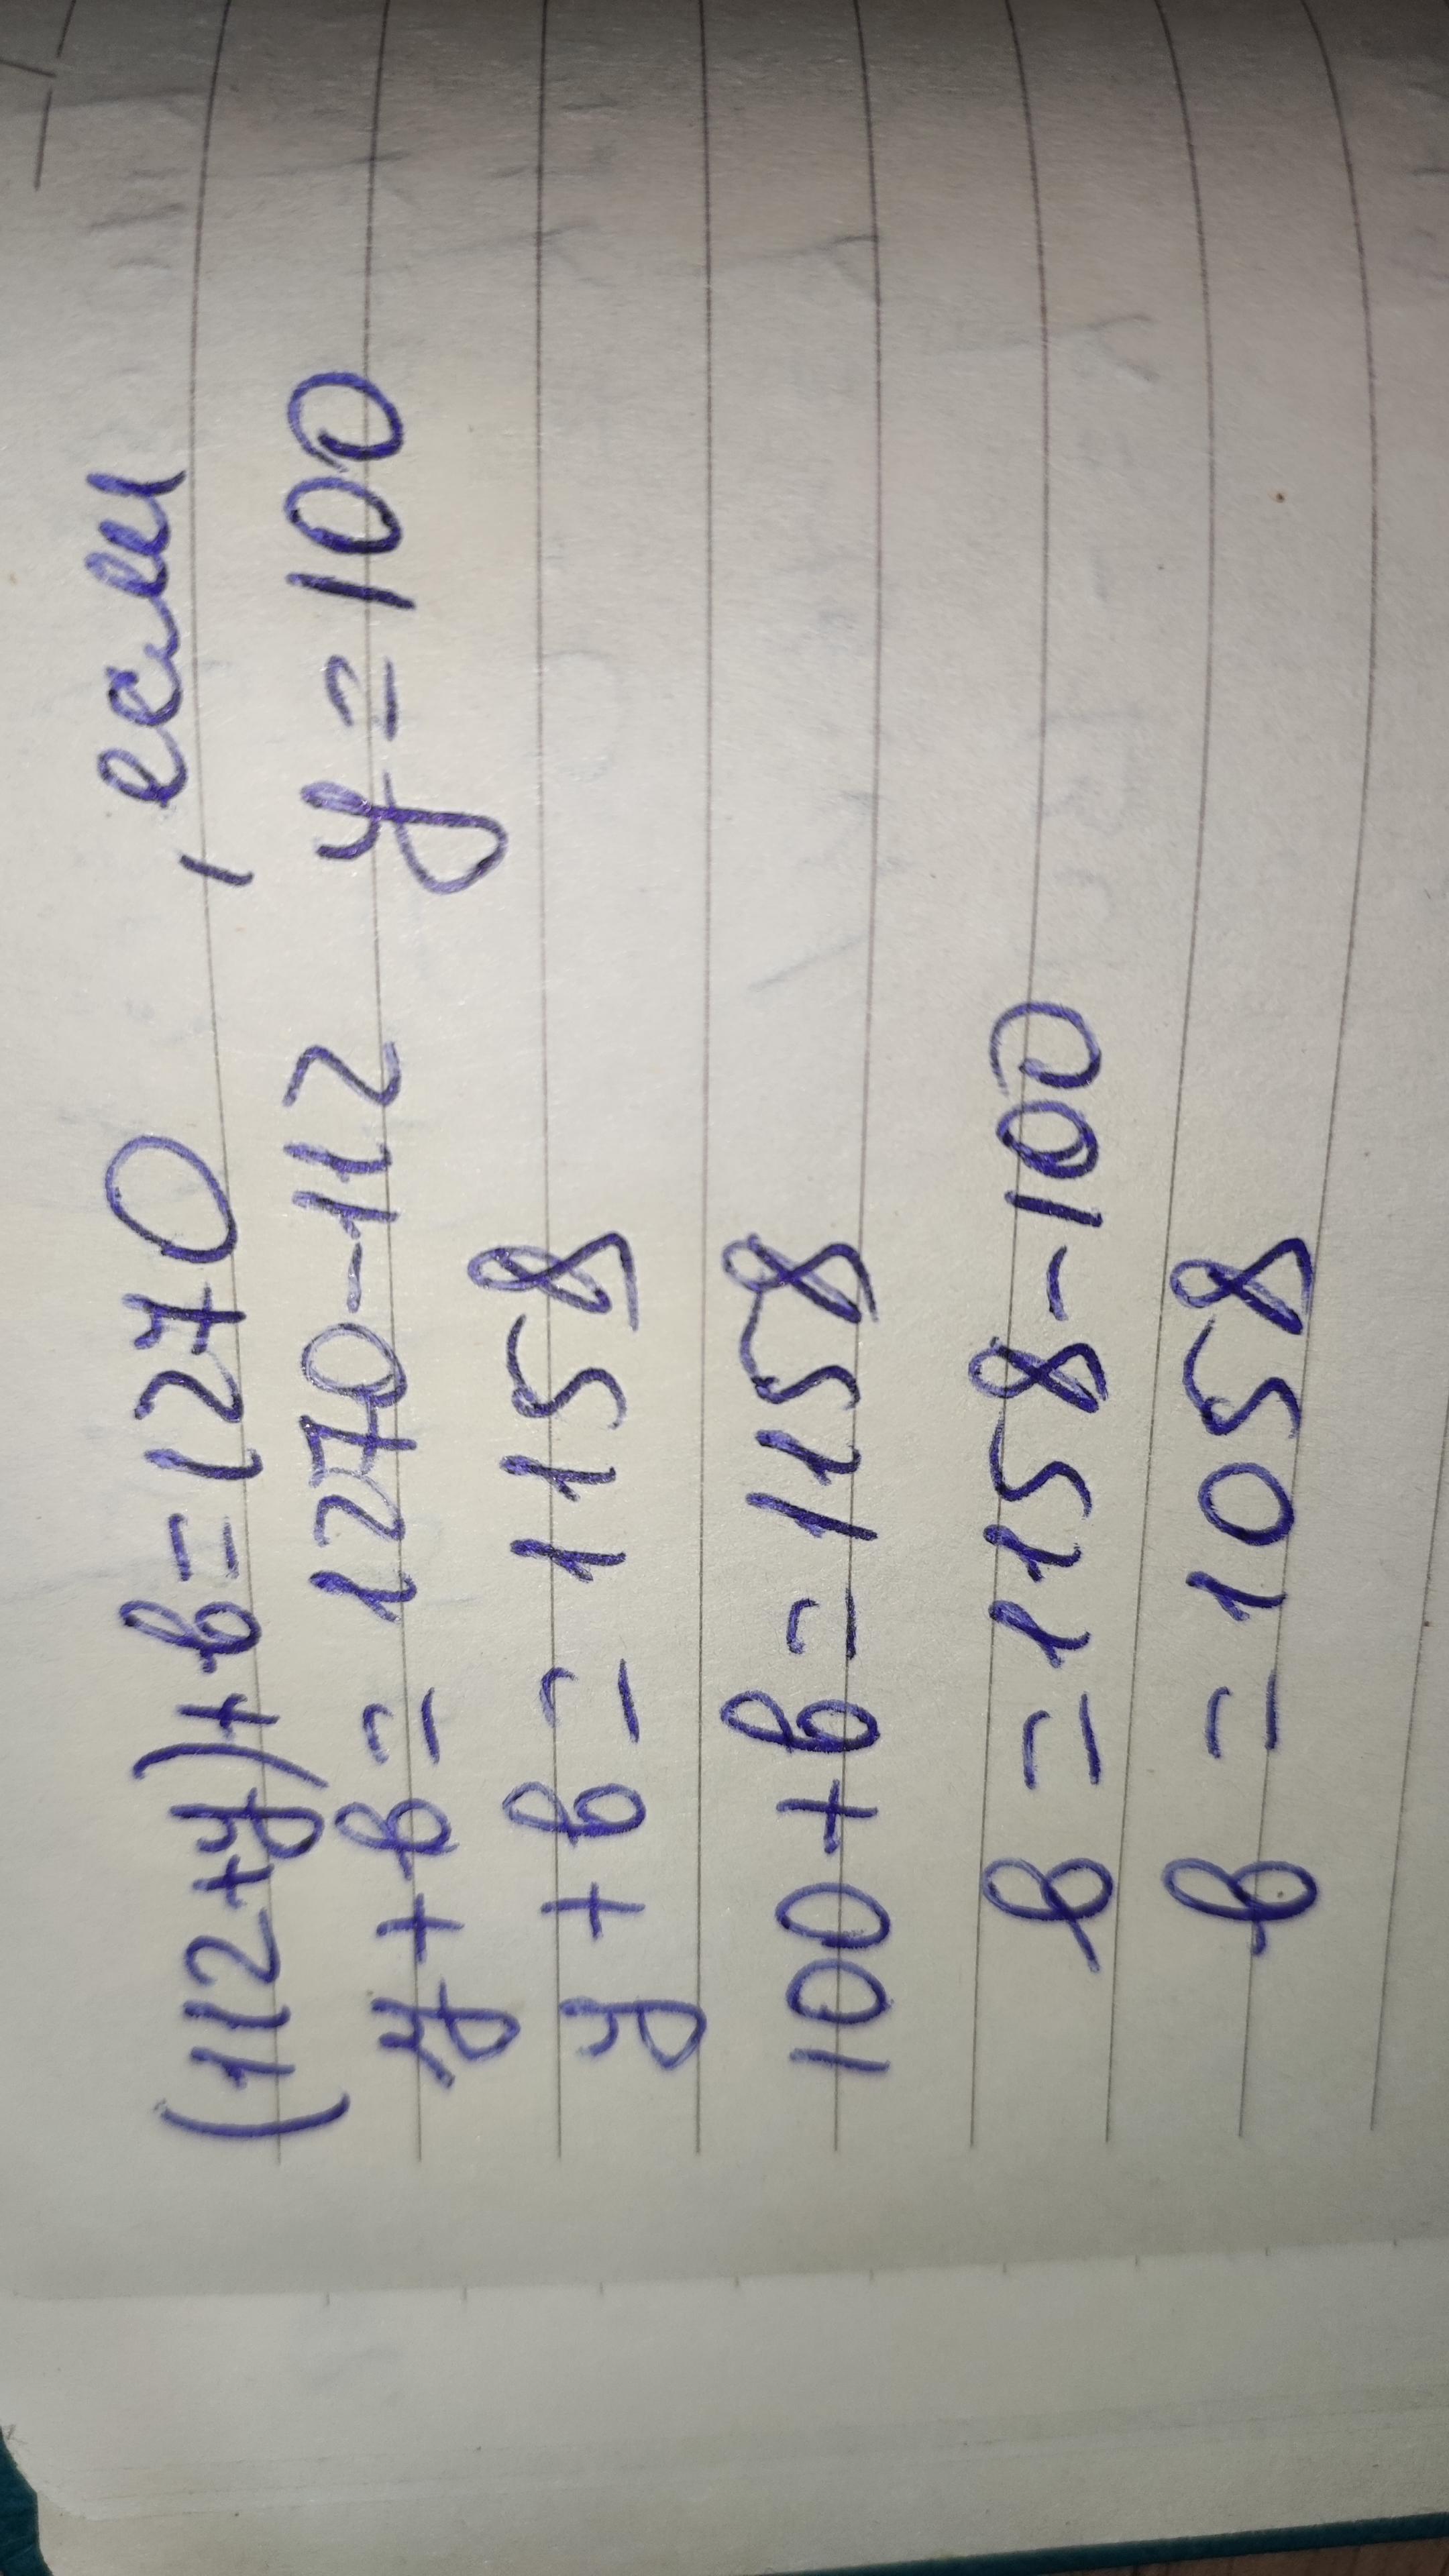 (112+y)+в=1270 , если
y+в= 1270-112 y=100
y+в= 1158
100+в=1158
в=1158-100
в=1058